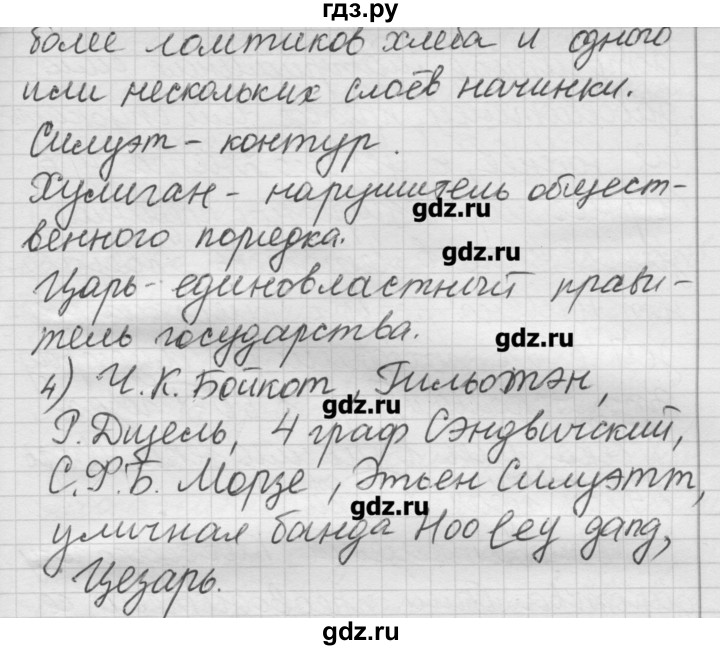 гдз.ру
более ломтиков хлеба и одного
или нескольких слоёв начинки.
Силуэт - контур.
Хулиган - нарушитель общест-
gdz.ru
венного порядка.
gdz.ru
Царь - единовластный прави-
тель государства.
gdz.ru
4) Ч. К. Бойкот, Гильотэн,
gdz.ru
Р. Дизель, 4 граф Сэндвичский,
С. Ф. Б. Морзе, Этьен Силуэтт,
gdz.ru
уличная банда Hooley gang,
Цезарь.
gdz.ru